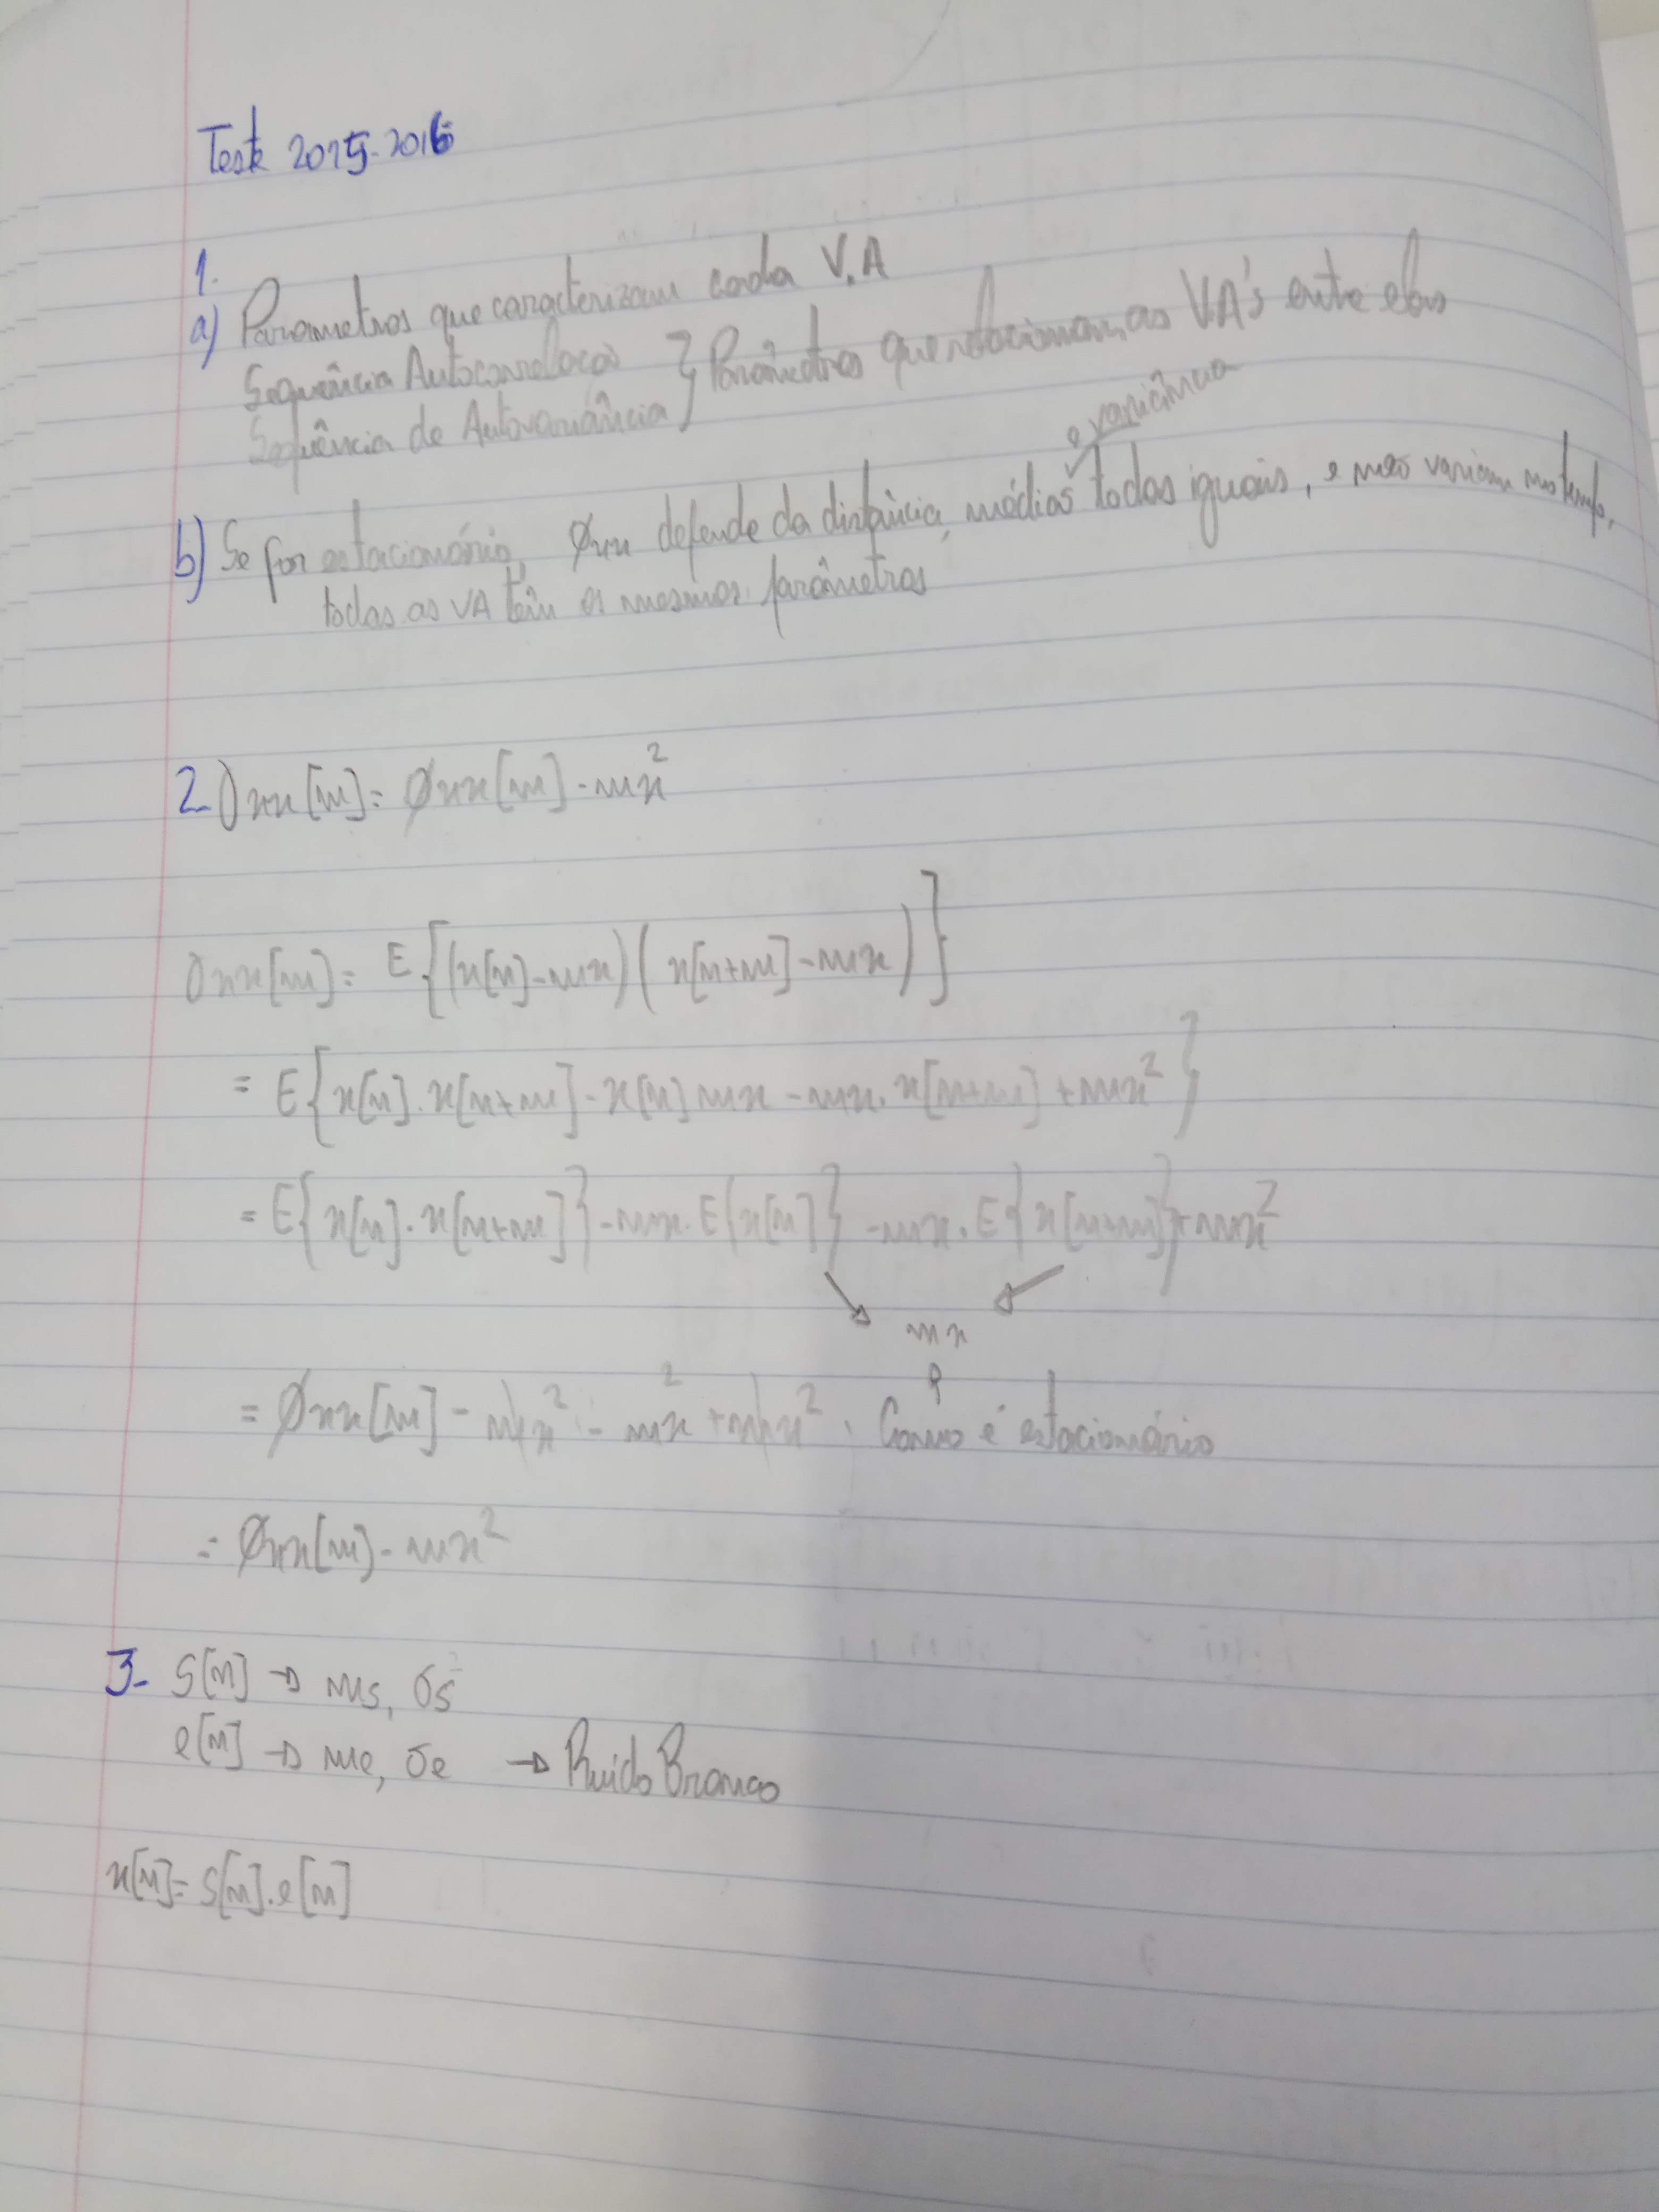 Teste 2015-2016
1.
a) Parametros que caracterizam cada V.A
Sequência Autocorrelação } Parâmetros que relacionam as V.A's entre elas
Sequência de Autovariância
e variância
b) Se for estacionário, Øxx depende da distância, médias todas iguais, e não variam no tempo,
todas as VA têm os mesmos parâmetros
2- γxx[m] = Øxx[m] - mx²
γxx[m] = E{(x[n]-mx)(x[n+m]-mx)}
= E{x[n].x[n+m]-x[n]mx-mx.x[n+m]+mx²}
= E{x[n].x[n+m]}-mx.E{x[n]}-mx.E{x[n+m]}+mx²
mx
= Øxx[m] - mx² - mx² + mx². Como é estacionário
= Øxx[m] - mx²
3- S[n] → ms, σs²
e[n] → me, σe → Ruido Branco
x[n] = S[n].e[n]